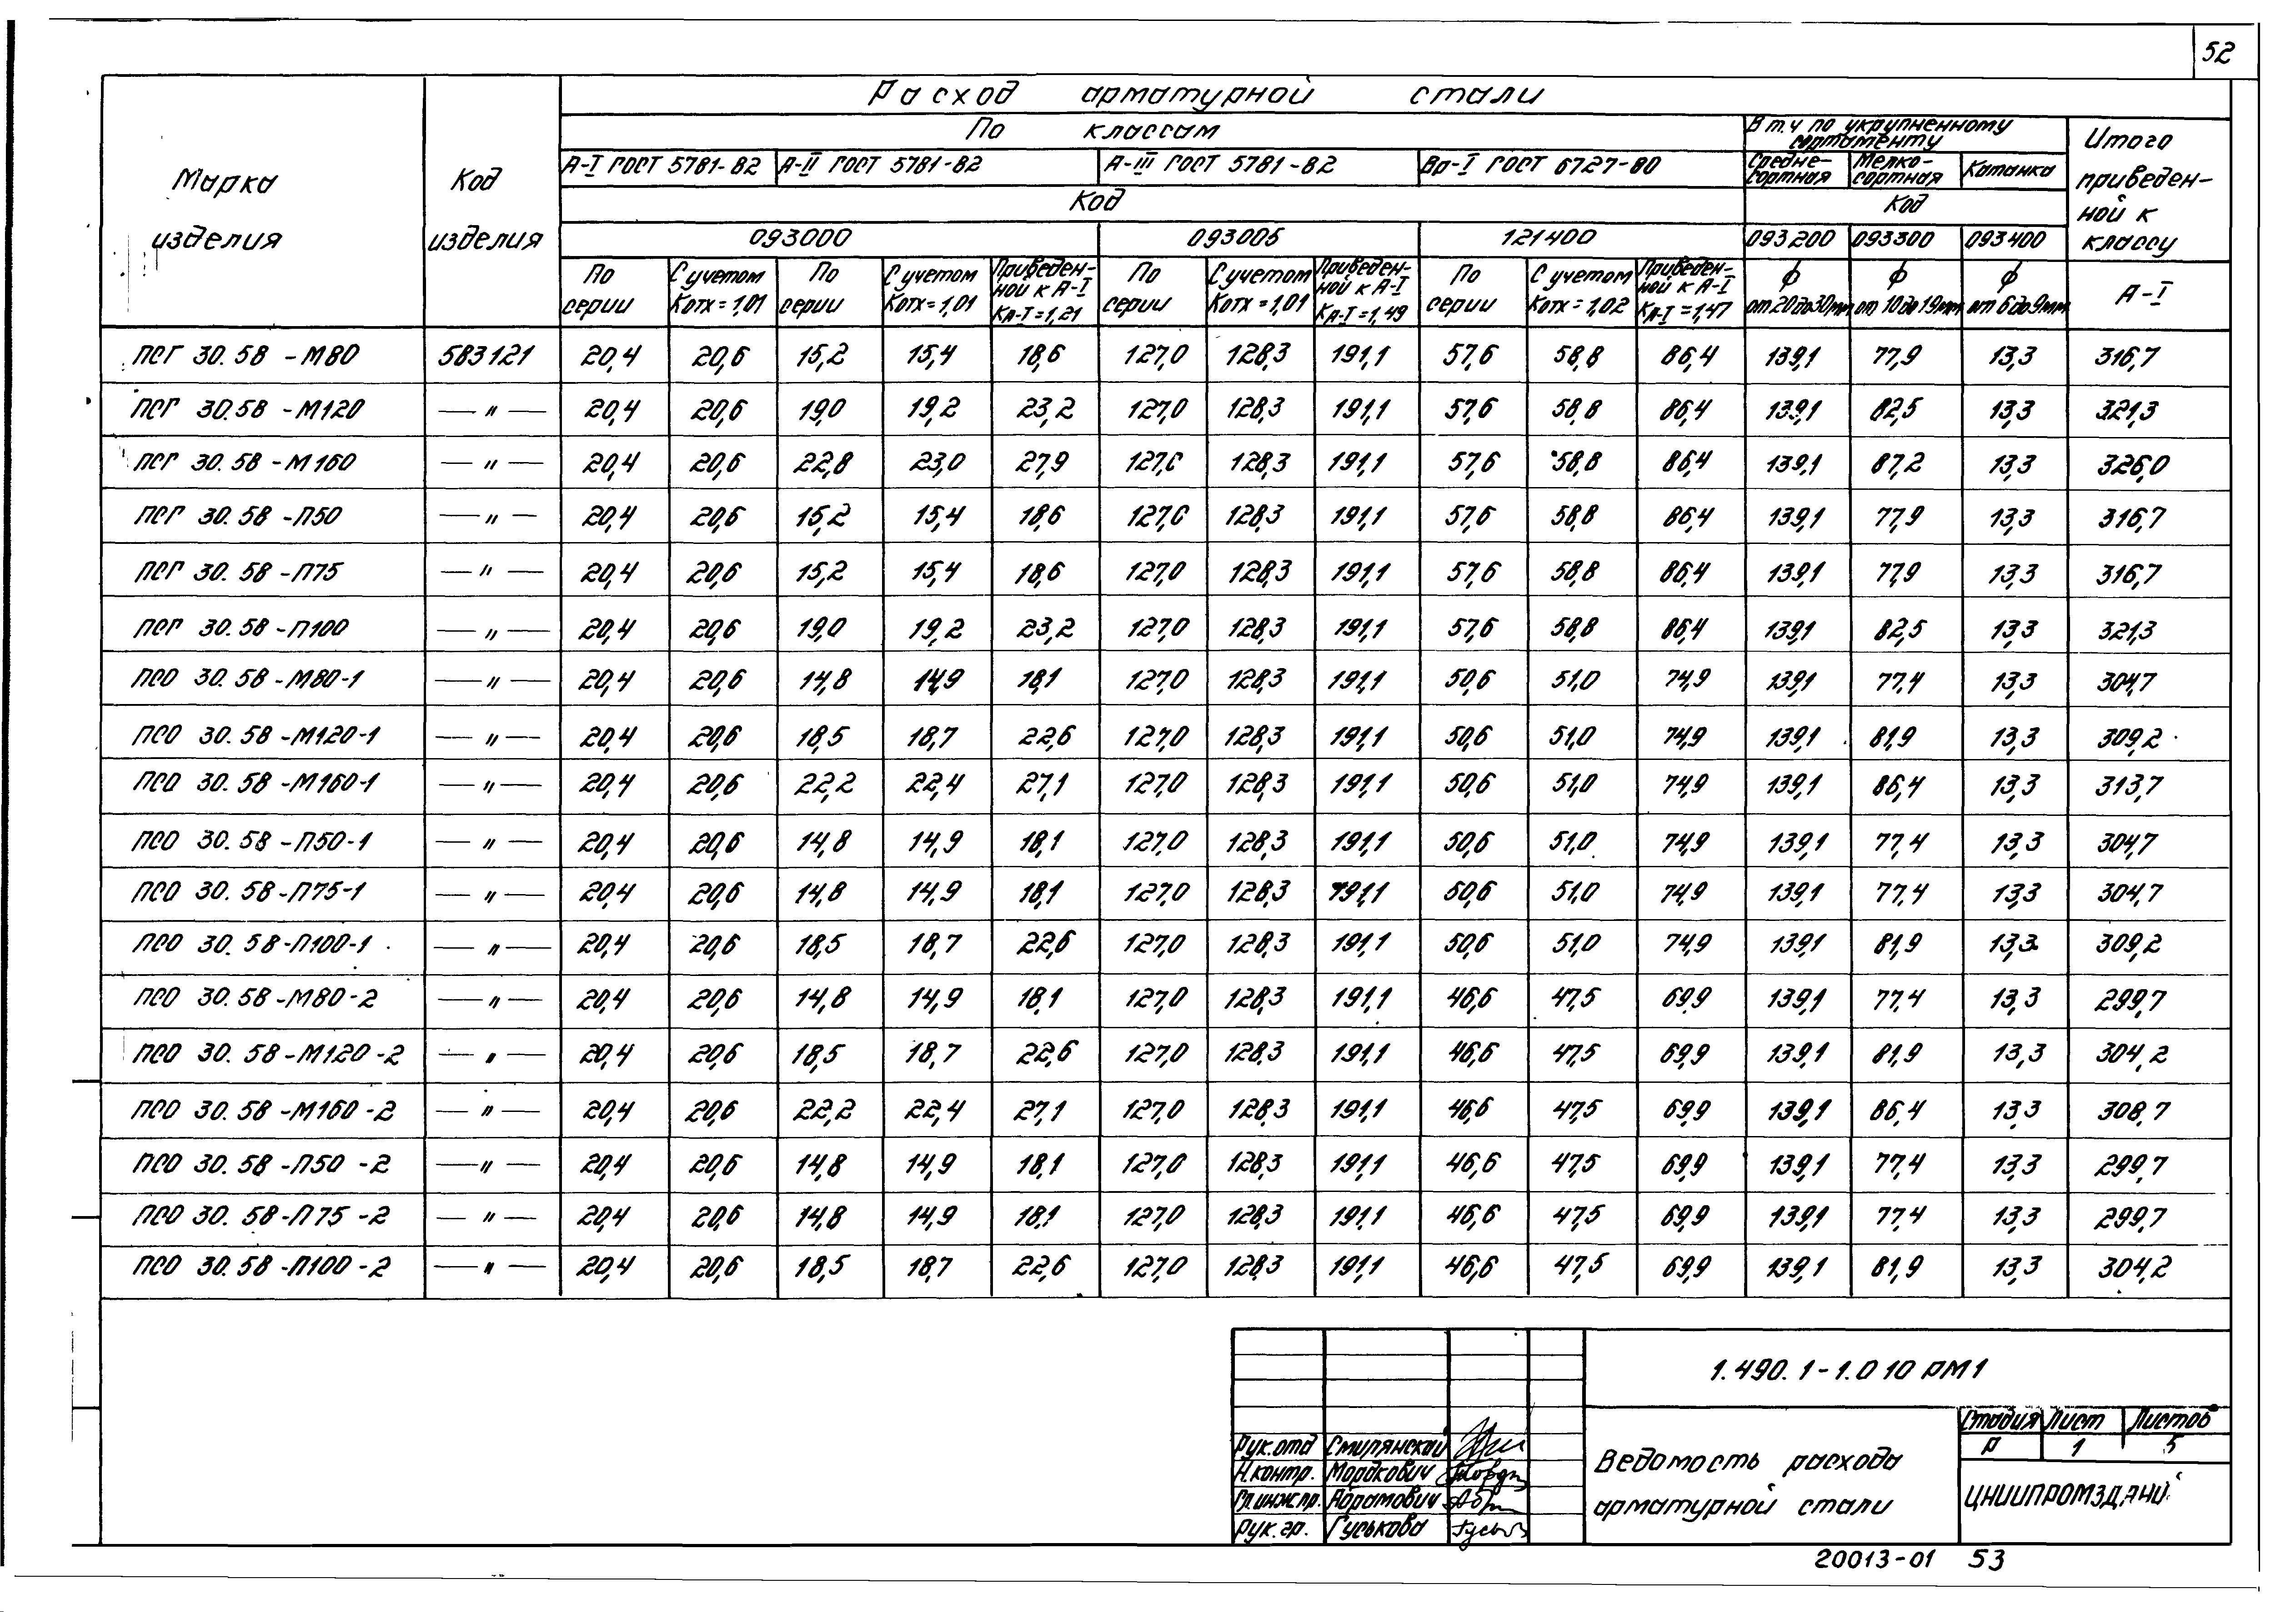 52
Расход арматурной стали
По классам
В т.ч по укрупненному сортаменту
Итого приведен-ной к классу А-I
Марка изделия
Код изделия
А-I ГОСТ 5781-82 А-II ГОСТ 5781-82 А-III ГОСТ 5781-82 Вр-I ГОСТ 6727-80 Средне-сортная Мелко-сортная Катанка
Код Код
093000 093005 121400 093200 093300 093400
По серии С учетом Котх=1,01 По серии С учетом Котх=1,01 Приведен-ной к А-I КА-I=1,21 По серии С учетом Котх=1,01 Приведен-ной к А-I КА-I=1,49 По серии С учетом Котх=1,02 Приведен-ной к А-I КА-I=1,47 ф от 20 до 30мм ф от 10 до 19мм ф от 6 до 9мм
ПСГ 30.58-М80 583121 20,4 20,6 15,2 15,4 18,6 127,0 128,3 191,1 57,6 58,8 86,4 139,1 77,9 13,3 316,7
ПСГ 30.58-М120 —〃— 20,4 20,6 19,0 19,2 23,2 127,0 128,3 191,1 57,6 58,8 86,4 139,1 82,5 13,3 321,3
ПСГ 30.58-М160 —〃— 20,4 20,6 22,8 23,0 27,9 127,0 128,3 191,1 57,6 58,8 86,4 139,1 87,2 13,3 326,0
ПСГ 30.58-П50 —〃— 20,4 20,6 15,2 15,4 18,6 127,0 128,3 191,1 57,6 58,8 86,4 139,1 77,9 13,3 316,7
ПСГ 30.58-П75 —〃— 20,4 20,6 15,2 15,4 18,6 127,0 128,3 191,1 57,6 58,8 86,4 139,1 77,9 13,3 316,7
ПСГ 30.58-П100 —〃— 20,4 20,6 19,0 19,2 23,2 127,0 128,3 191,1 57,6 58,8 86,4 139,1 82,5 13,3 321,3
ПСО 30.58-М80-1 —〃— 20,4 20,6 14,8 14,9 18,1 127,0 128,3 191,1 50,6 51,0 74,9 139,1 77,4 13,3 304,7
ПСО 30.58-М120-1 —〃— 20,4 20,6 18,5 18,7 22,6 127,0 128,3 191,1 50,6 51,0 74,9 139,1 81,9 13,3 309,2
ПСО 30.58-М160-1 —〃— 20,4 20,6 22,2 22,4 27,1 127,0 128,3 191,1 50,6 51,0 74,9 139,1 86,4 13,3 313,7
ПСО 30.58-П50-1 —〃— 20,4 20,6 14,8 14,9 18,1 127,0 128,3 191,1 50,6 51,0 74,9 139,1 77,4 13,3 304,7
ПСО 30.58-П75-1 —〃— 20,4 20,6 14,8 14,9 18,1 127,0 128,3 191,1 50,6 51,0 74,9 139,1 77,4 13,3 304,7
ПСО 30.58-П100-1 —〃— 20,4 20,6 18,5 18,7 22,6 127,0 128,3 191,1 50,6 51,0 74,9 139,1 81,9 13,3 309,2
ПСО 30.58-М80-2 —〃— 20,4 20,6 14,8 14,9 18,1 127,0 128,3 191,1 46,6 47,5 69,9 139,1 77,4 13,3 299,7
ПСО 30.58-М120-2 —〃— 20,4 20,6 18,5 18,7 22,6 127,0 128,3 191,1 46,6 47,5 69,9 139,1 81,9 13,3 304,2
ПСО 30.58-М160-2 —〃— 20,4 20,6 22,2 22,4 27,1 127,0 128,3 191,1 46,6 47,5 69,9 139,1 86,4 13,3 308,7
ПСО 30.58-П50-2 —〃— 20,4 20,6 14,8 14,9 18,1 127,0 128,3 191,1 46,6 47,5 69,9 139,1 77,4 13,3 299,7
ПСО 30.58-П75-2 —〃— 20,4 20,6 14,8 14,9 18,1 127,0 128,3 191,1 46,6 47,5 69,9 139,1 77,4 13,3 299,7
ПСО 30.58-П100-2 —〃— 20,4 20,6 18,5 18,7 22,6 127,0 128,3 191,1 46,6 47,5 69,9 139,1 81,9 13,3 304,2
1.490.1-1.010 РМ1
Рук.отд Смилянский
Н.контр. Мордкович
Гл.инж.пр. Абрамович
Рук.гр. Гуськова
Ведомость расхода
арматурной стали
Стадия Лист Листов
Р 1 5
ЦНИИПРОМЗДАНИЙ
20013-01 53